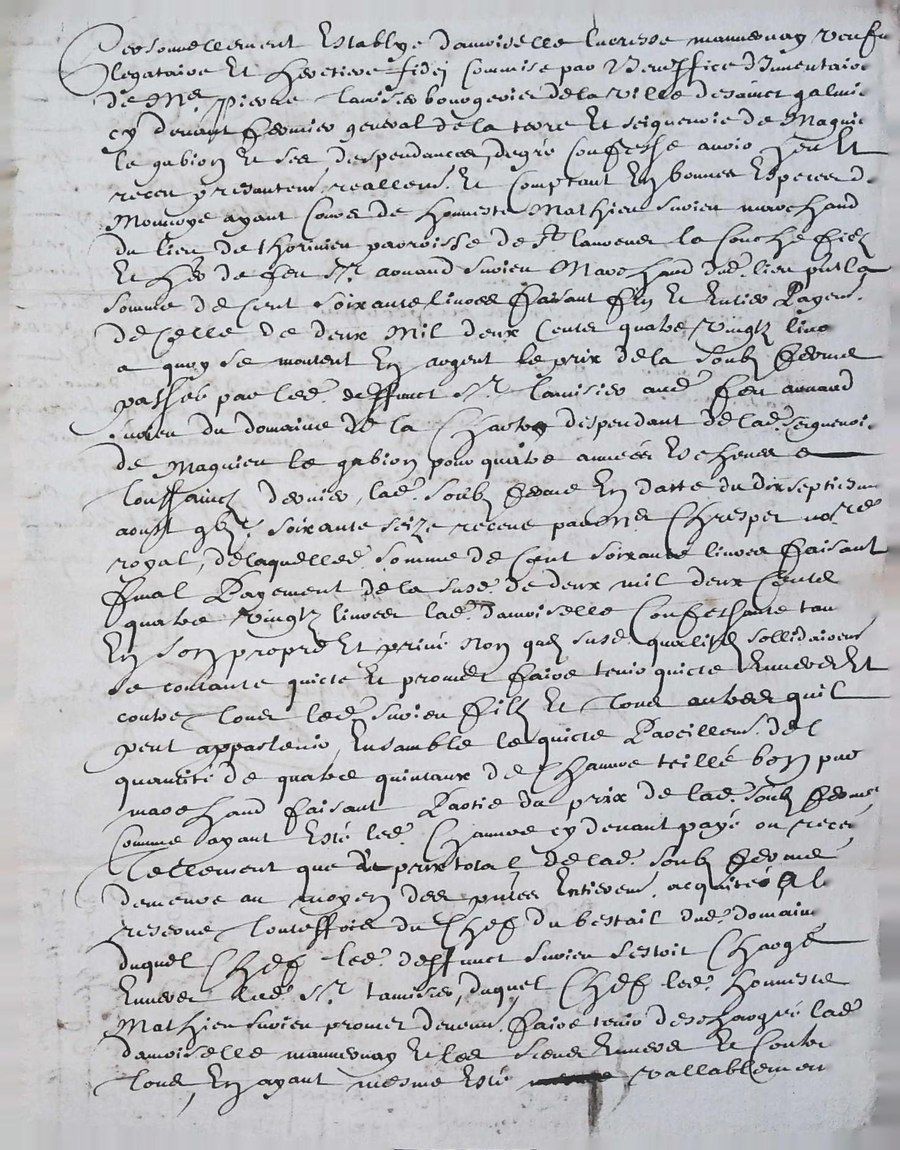 Personnellement establye damoiselle lucresse mannevay veufve
legataire et heretiere fidei commise par beneffice dInventaire
de Mre pierre tamisier bourgeois de la ville de sainct galmie
cy devant fermier general de la terre et seigneurie de Magnieu
le gabion et ses despendances, de gré confesse avoir heu et
receu presentemt reallemt et comptant en bonnes especes de
Monnoye ayant cours de honneste Mathieu suvien marchand
du lieu de thorinieu parroisse de St laurens la Conche filz
et her de feu Sr arnaud suvien Marchand dud. lieu
somme de Cent soixante livres faisant fin et entier payemt
de Celle de deux Mil deux Cents quatre vingtz livres
a quoy se montent en argent le prix de la soubz ferme
passée par led. deffunct Sr tamisier aud. feu arnaud
suvien du domaine de la despendant de lad. seigneurie
de Magnieu le gabion pour quatre années escheues a
toussainctz dernier, lad. soubz ferme en datte du dix septiesme
aoust soixante seize receue par Me Chrespet nore
royal, de laquelle somme de Cent soixante livres faisant
final payement de la susd. de deux mil deux Cents
quatre vingtz livres lad. damoiselle Confessante tant
en son propre et privé nom susd. qualités sollidairemt
se contante quicte et promet faire tenir quicte envers et
contre tous led. suvien filz et tous autres quil
peut appartenir, ensamble le quicte pareillemt de l
quantité de quatre quintaux de Chanvre teillé bon pur
marchand faisant partie du prix de lad. soubz ferme
Comme ayant esté led. Chanvre cy devant payé ou receu
tellement que le prix total de lad. soubz ferme
demeure au moyen des entierem. acquité a la
reserve touteffois du Chef du bestail dud. domaine
duquel Chef led. deffunct suvien sestoit Chargé
envers led. Sr tamisier, duquel Chef led. honneste
Mathieu suvien promet faire tenir deschargée lad.
damoiselle mannevay et les siens envers et contre
tous, en ayant mesme esté vallablement